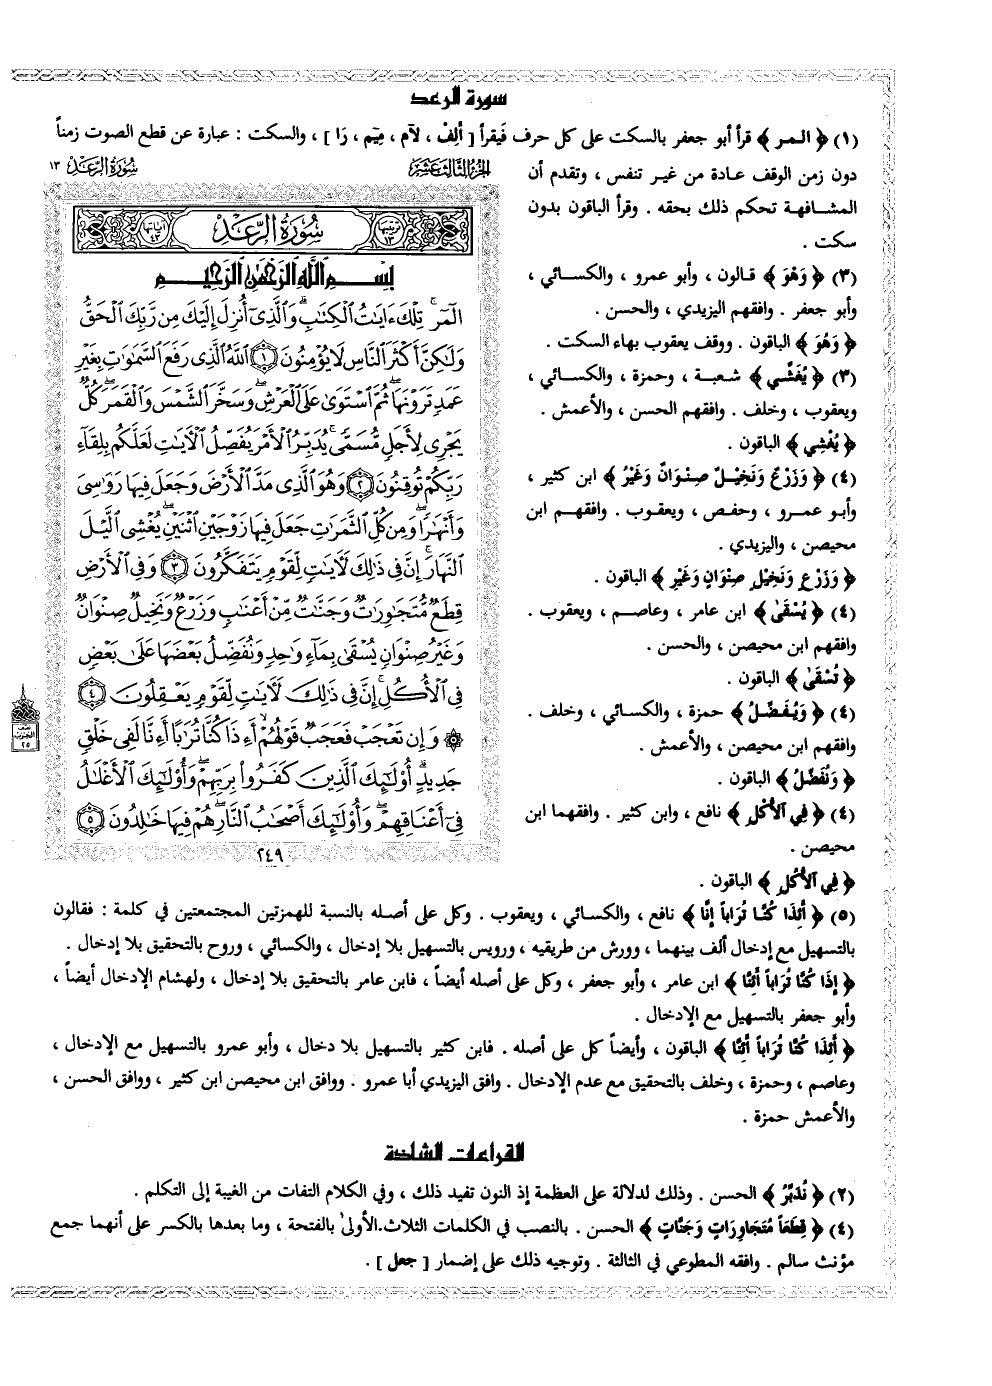 سورة الرعد
(١) ﴿ الـمـر ﴾ قرأ أبو جعفر بالسكت على كل حرف فَيقرأ [ أَلِفْ ، لاَم ، مِيَم ، رَا ] ، والسكت : عبارة عن قطع الصوت زمناً
دون زمن الوقف عادة من غير تنفس ، وتقدم أن
المشافهة تحكم ذلك بحقه . وقرأ الباقون بدون
سكت .
(٣) ﴿ وَهْوَ ﴾ قالون ، وأبو عمرو ، والكسائي ،
وأبو جعفر . وافقهم اليزيدي ، والحسن .
﴿ وَهُوَ ﴾ الباقون . ووقف يعقوب بهاء السكت .
(٣) ﴿ يُغَشِّي ﴾ شعبة ، وحمزة ، والكسائي ،
ويعقوب ، وخلف . وافقهم الحسن ، والأعمش .
﴿ يُغْشِي ﴾ الباقون .
(٤) ﴿ وَزَرْعٌ وَنَخِيلٌ صِنْوَانٌ وَغَيْرُ ﴾ ابن كثير ،
وأبو عمرو ، وحفص ، ويعقوب . وافقهم ابن
محيصن ، واليزيدي .
﴿ وَزَرْعٍ وَنَخِيلٍ صِنْوَانٍ وَغَيْرِ ﴾ الباقون .
(٤) ﴿ يُسْقَىٰ ﴾ ابن عامر ، وعاصم ، ويعقوب .
وافقهم ابن محيصن ، والحسن .
﴿ تُسْقَىٰ ﴾ الباقون .
(٤) ﴿ وَيُفَضِّلُ ﴾ حمزة ، والكسائي ، وخلف .
وافقهم ابن محيصن ، والأعمش .
﴿ وَنُفَضِّلُ ﴾ الباقون .
(٤) ﴿ فِي الأُكْلِ ﴾ نافع ، وابن كثير . وافقهما ابن
محيصن .
﴿ فِي الأُكُلِ ﴾ الباقون .
الجزء الثالث عشر
سورة الرعد ١٣
ترتيبها ١٣
سُورَةُ الرَّعْدِ
آياتها ٤٣
بِسْمِ اللَّهِ الرَّحْمَٰنِ الرَّحِيمِ
الٓمٓر ۚ تِلْكَ ءَايَـٰتُ الْكِتَـٰبِ ۗ وَالَّذِىٓ أُنزِلَ إِلَيْكَ مِن رَّبِّكَ الْحَقُّ
وَلَـٰكِنَّ أَكْثَرَ النَّاسِ لَا يُؤْمِنُونَ ١ اللَّهُ الَّذِى رَفَعَ السَّمَـٰوَٰتِ بِغَيْرِ
عَمَدٍ تَرَوْنَهَا ۖ ثُمَّ اسْتَوَىٰ عَلَى الْعَرْشِ ۖ وَسَخَّرَ الشَّمْسَ وَالْقَمَرَ ۖ كُلٌّ
يَجْرِى لِأَجَلٍ مُّسَمًّى ۚ يُدَبِّرُ الْأَمْرَ يُفَصِّلُ الْآيَـٰتِ لَعَلَّكُم بِلِقَآءِ
رَبِّكُمْ تُوقِنُونَ ٢ وَهُوَ الَّذِى مَدَّ الْأَرْضَ وَجَعَلَ فِيهَا رَوَٰسِىَ
وَأَنْهَـٰرًا ۖ وَمِن كُلِّ الثَّمَرَٰتِ جَعَلَ فِيهَا زَوْجَيْنِ اثْنَيْنِ ۖ يُغْشِى الَّيْلَ
النَّهَارَ ۚ إِنَّ فِى ذَٰلِكَ لَآيَـٰتٍ لِّقَوْمٍ يَتَفَكَّرُونَ ٣ وَفِى الْأَرْضِ
قِطَعٌ مُّتَجَـٰوِرَٰتٌ وَجَنَّـٰتٌ مِّنْ أَعْنَـٰبٍ وَزَرْعٌ وَنَخِيلٌ صِنْوَانٌ
وَغَيْرُ صِنْوَانٍ يُسْقَىٰ بِمَآءٍ وَٰحِدٍ وَنُفَضِّلُ بَعْضَهَا عَلَىٰ بَعْضٍ
فِى الْأُكُلِ ۚ إِنَّ فِى ذَٰلِكَ لَآيَـٰتٍ لِّقَوْمٍ يَعْقِلُونَ ٤
۞ وَإِن تَعْجَبْ فَعَجَبٌ قَوْلُهُمْ أَءِذَا كُنَّا تُرَٰبًا أَءِنَّا لَفِى خَلْقٍ
جَدِيدٍ ۗ أُو۟لَـٰٓئِكَ الَّذِينَ كَفَرُوا۟ بِرَبِّهِمْ ۖ وَأُو۟لَـٰٓئِكَ الْأَغْلَـٰلُ
فِىٓ أَعْنَاقِهِمْ ۖ وَأُو۟لَـٰٓئِكَ أَصْحَـٰبُ النَّارِ ۖ هُمْ فِيهَا خَـٰلِدُونَ ٥
٢٤٩
نصف
الحزب
٢٥
(٥) ﴿ أَئِذَا كُنَّا تُرَاباً إِنَّا ﴾ نافع ، والكسائي ، ويعقوب . وكل على أصله بالنسبة للهمزتين المجتمعتين في كلمة : فقالون
بالتسهيل مع إدخال ألف بينهما ، وورش من طريقيه ، ورويس بالتسهيل بلا إدخال ، والكسائي ، وروح بالتحقيق بلا إدخال .
﴿ إِذَا كُنَّا تُرَاباً أَئِنَّا ﴾ ابن عامر ، وأبو جعفر ، وكل على أصله أيضاً ، فابن عامر بالتحقيق بلا إدخال ، ولهشام الإدخال أيضاً ،
وأبو جعفر بالتسهيل مع الإدخال .
﴿ أَئِذَا كُنَّا تُرَاباً أَئِنَّا ﴾ الباقون ، وأيضاً كل على أصله . فابن كثير بالتسهيل بلا دخال ، وأبو عمرو بالتسهيل مع الإدخال ،
وعاصم ، وحمزة ، وخلف بالتحقيق مع عدم الإدخال . وافق اليزيدي أبا عمرو . ووافق ابن محيصن ابن كثير ، ووافق الحسن ،
والأعمش حمزة .
القراءات الشاذة
(٢) ﴿ نُدَبِّرُ ﴾ الحسن . وذلك لدلالة على العظمة إذ النون تفيد ذلك ، وفي الكلام التفات من الغيبة إلى التكلم .
(٤) ﴿ قِطَعاً مُتَجَاوِرَاتٍ وَجَنَّاتٍ ﴾ الحسن . بالنصب في الكلمات الثلاث.الأولىٰ بالفتحة ، وما بعدها بالكسر على أنهما جمع
مؤنث سالم . وافقه المطوعي في الثالثة . وتوجيه ذلك على إضمار [ جعل ] .